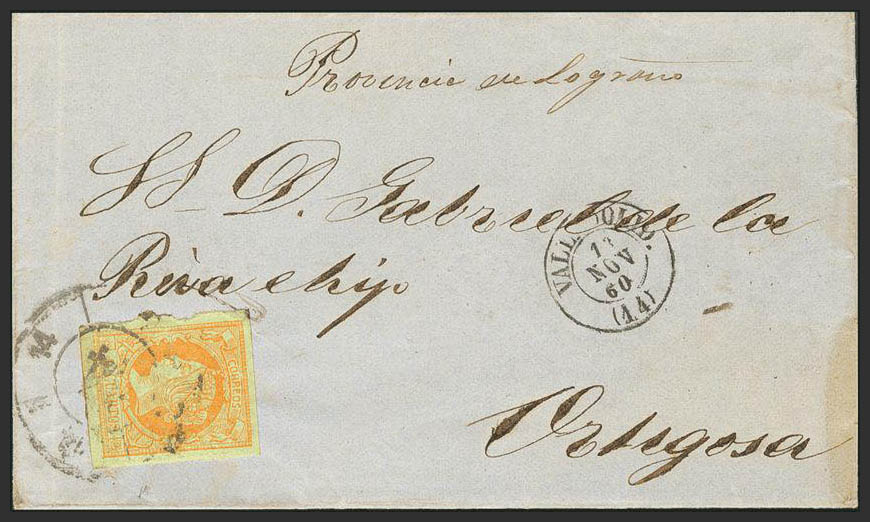 Provincia de Logroño
SS D. Gabriel de la
Riva e hijo
VALLADOLID.
NOV
60
(14)
CORREOS
14
Ortigosa